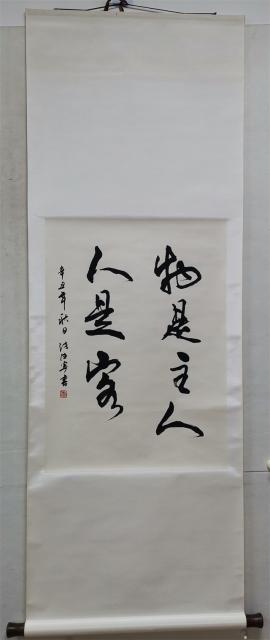 物是主人
人是客
辛丑年秋日